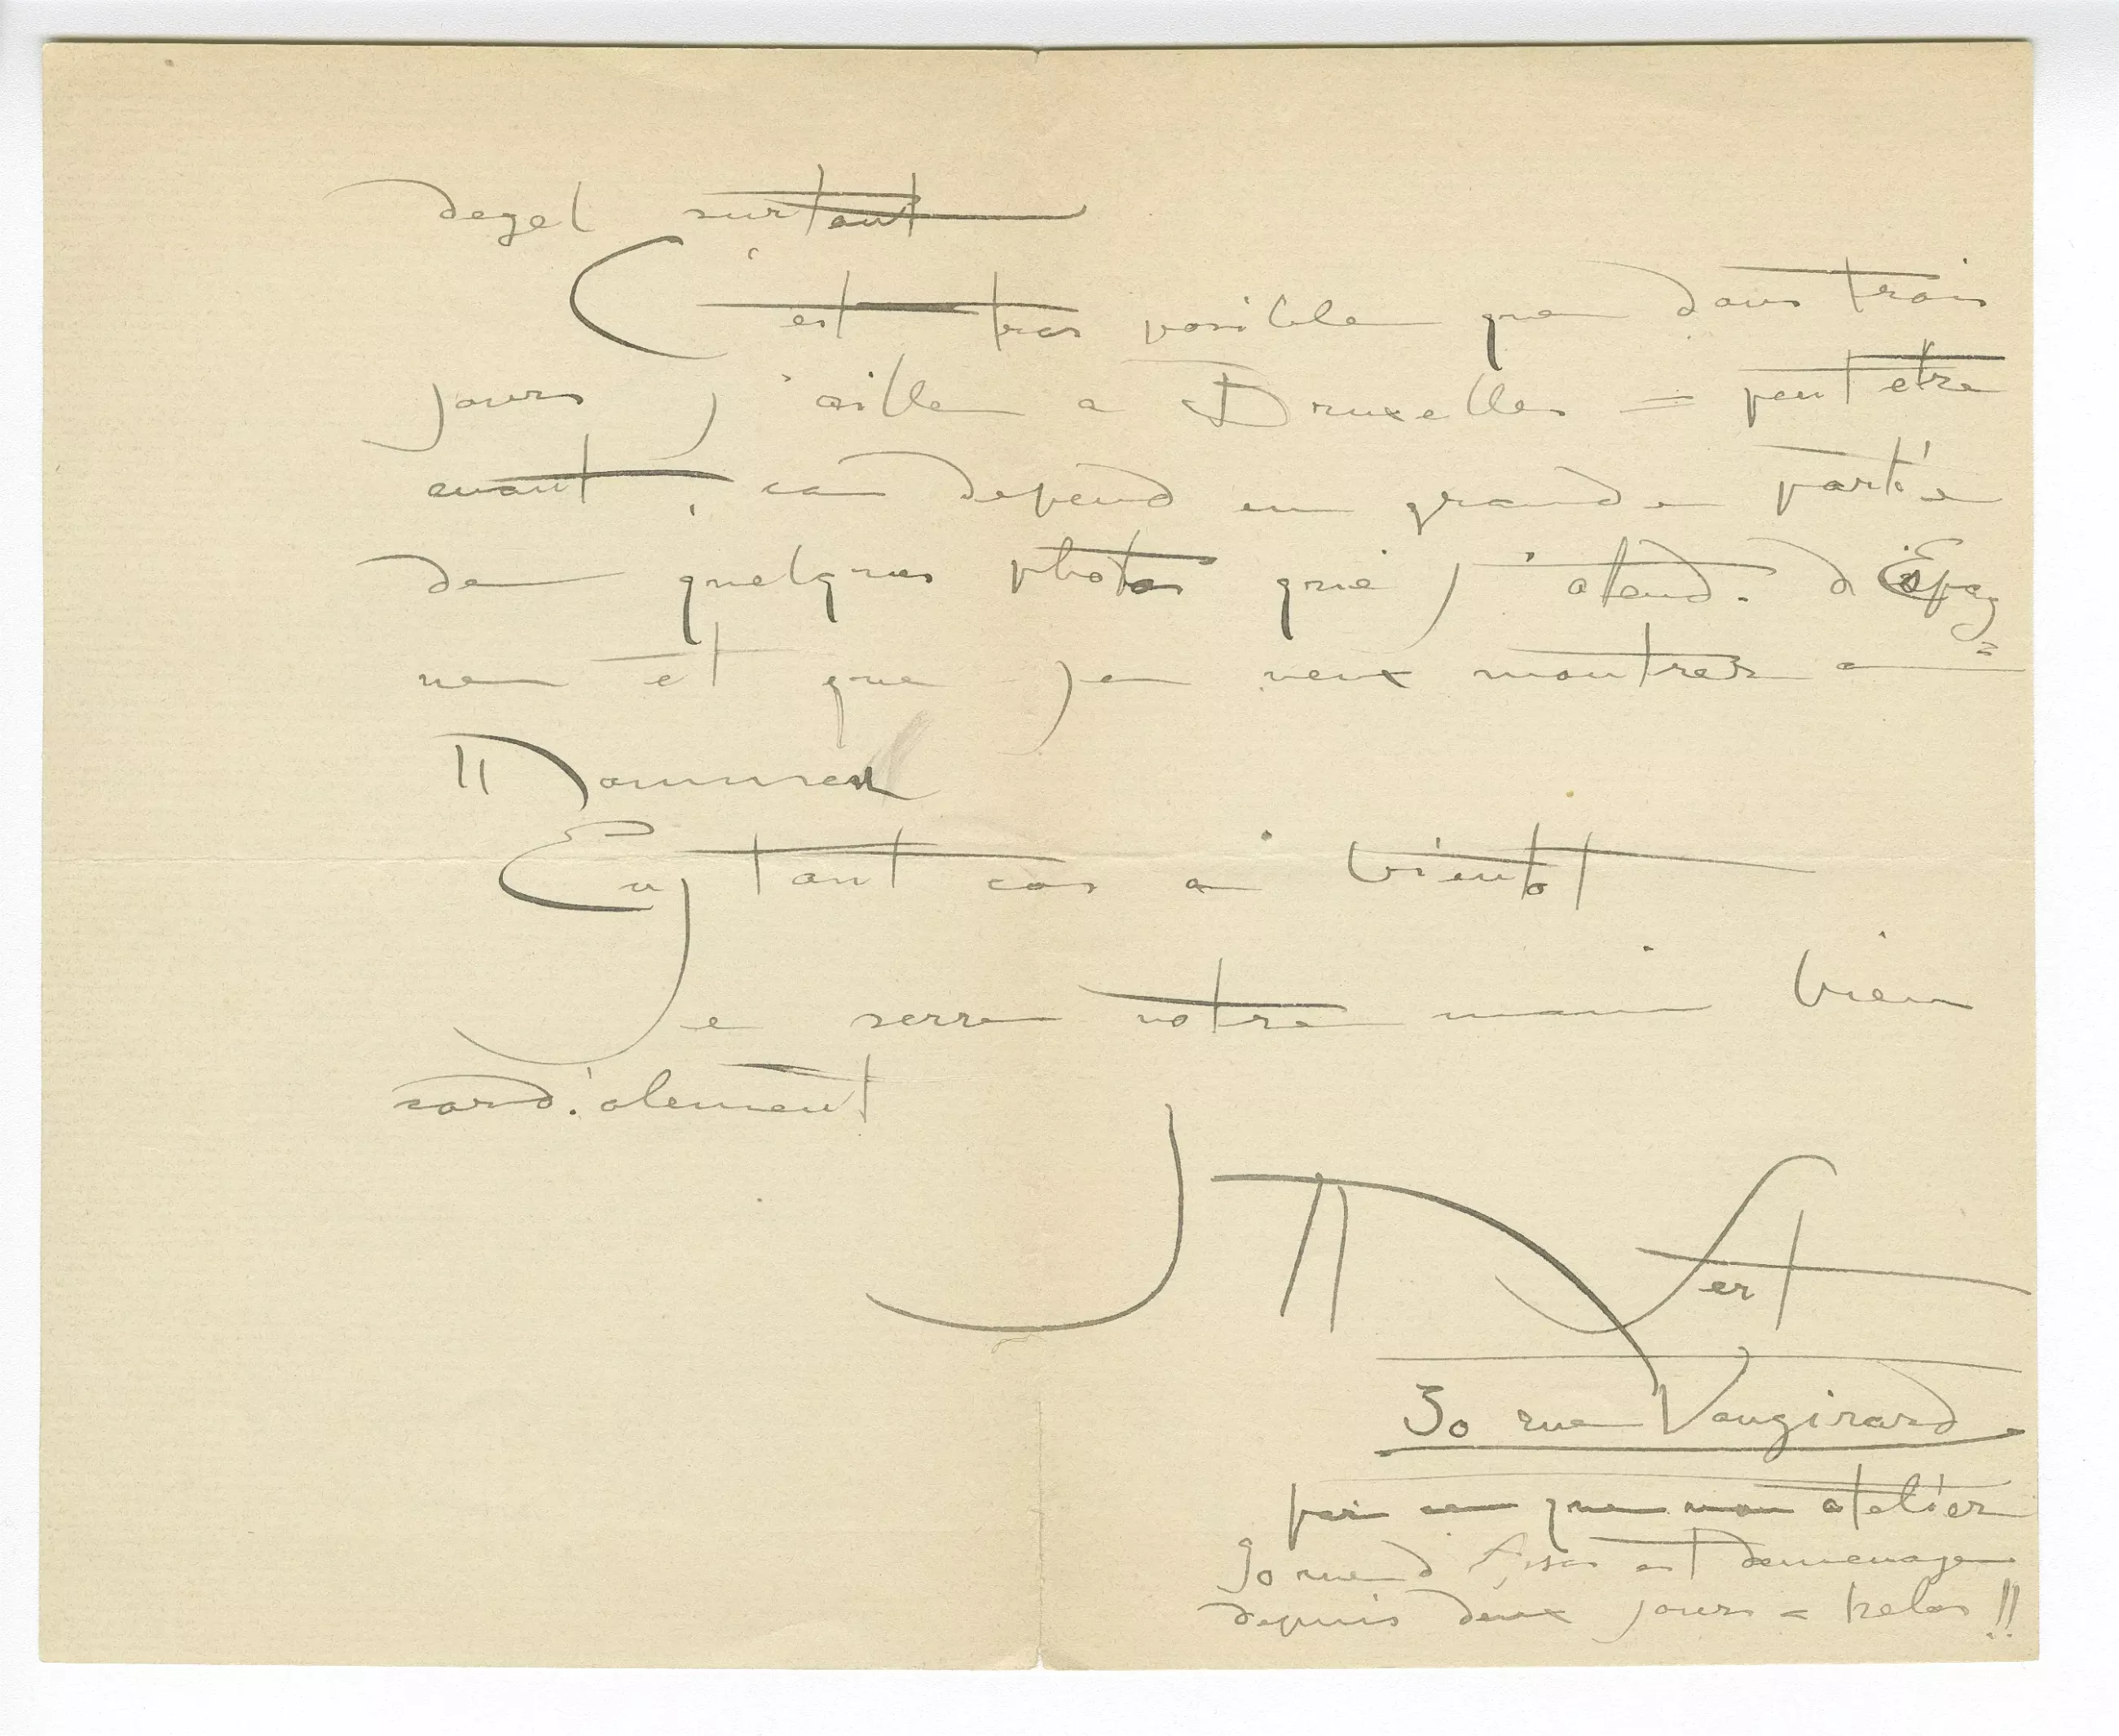 degel surtout
C'est tres posible que dans trois
jours j'aille a Bruxelles = peut etre
avant, ca depend en grande partie
de quelques photos que j'atend. d'Espag=
ne et que je veux montrer a
Mommen
En tout cas a bientot
Je serre votre main bien
cordialement
JM Sert
30 rue Vaugirard
par ce que mon atelier
30 rue d Assas est demenage
depuis deux jours = helas !!